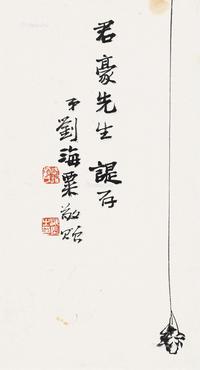 君豪先生諟存
弟劉海粟敬贈